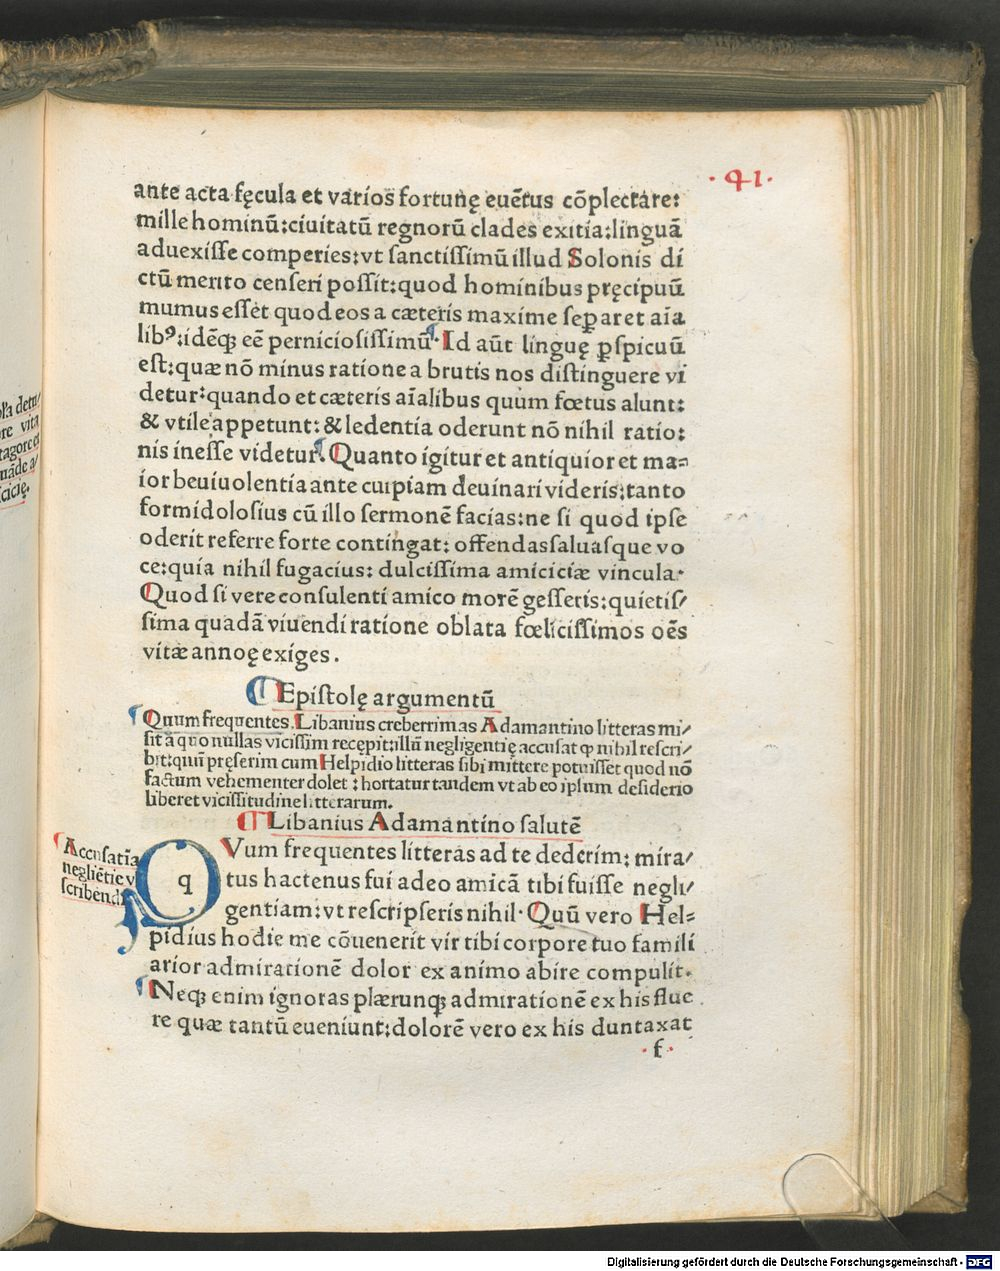 ·41·
ante acta fęcula et varios fortunę euētus cōplectare:
mille hominū:ciuitatū regnorū clades exitia:linguā
aduexiſſe comperies:vt ſanctiſſimū illud Solonis di
ctū merito cenſeri poſſit:quod hominibus pręcipuū
mumus eſſet quod eos a cæteris maxime ſeꝑaret aīa
libꝰ:idēqꝫ eē pernicioſiſſimū· Id aūt linguę ꝑſpicuū
eſt:quæ nō minus ratione a brutis nos diſtinguere vi
detur:quando et cæteris aīalibus quum fœtus alunt:
& vtile appetunt: & ledentia oderunt nō nihil ratio:
nis ineſſe videtur. Quanto igitur et antiquior et ma⸗
ior beuiuolentia ante cuipiam deuinari videris:tanto
formidoloſius cū illo ſermonē facias:ne ſi quod ipſe
oderit referre forte contingat: offendas ſaluaſque vo
ce:quia nihil fugacius: dulciſſima amiciciæ vincula·
Quod ſi vere conſulenti amico morē geſſeris:quietiſ/
ſima quadā viuendi ratione oblata fœliciſſimos oēs
vitæ annoę exiges.
¶ Epiſtolę argumentū
¶ Quum frequentes. Libanius creberrimas Adamantino litteras mi/
ſit a quo nullas viciſſim recępit:illū negligentię accuſat ꝙ nihil reſcri/
bit:quū pręſerim cum Helpidio litteras ſibi mittere potuiſſet quod nō
factum vehementer dolet : hortatur tandem vt ab eo ipſum deſiderio
liberet viciſſitudine litterarum.
¶ Libanius Adamantino ſalutē
¶ Accuſatīa
negliētie v
ſcribendi
q
Vum frequentes litteras ad te dederim: mira/
tus hactenus fui adeo amicā tibi fuiſſe negli/
gentiam:vt reſcripſeris nihil· Quū vero Hel⸗
pidius hodie me cōuenerit vir tibi corpore tuo famili
arior admirationē dolor ex animo abire compulit.
¶ Neqꝫ enim ignoras plærunqꝫ admirationē ex his flue
re quæ tantū eueniunt:dolorē vero ex his duntaxat
·f·
vita
Digitalisierung gefördert durch die Deutsche Forschungsgemeinschaft - DFG